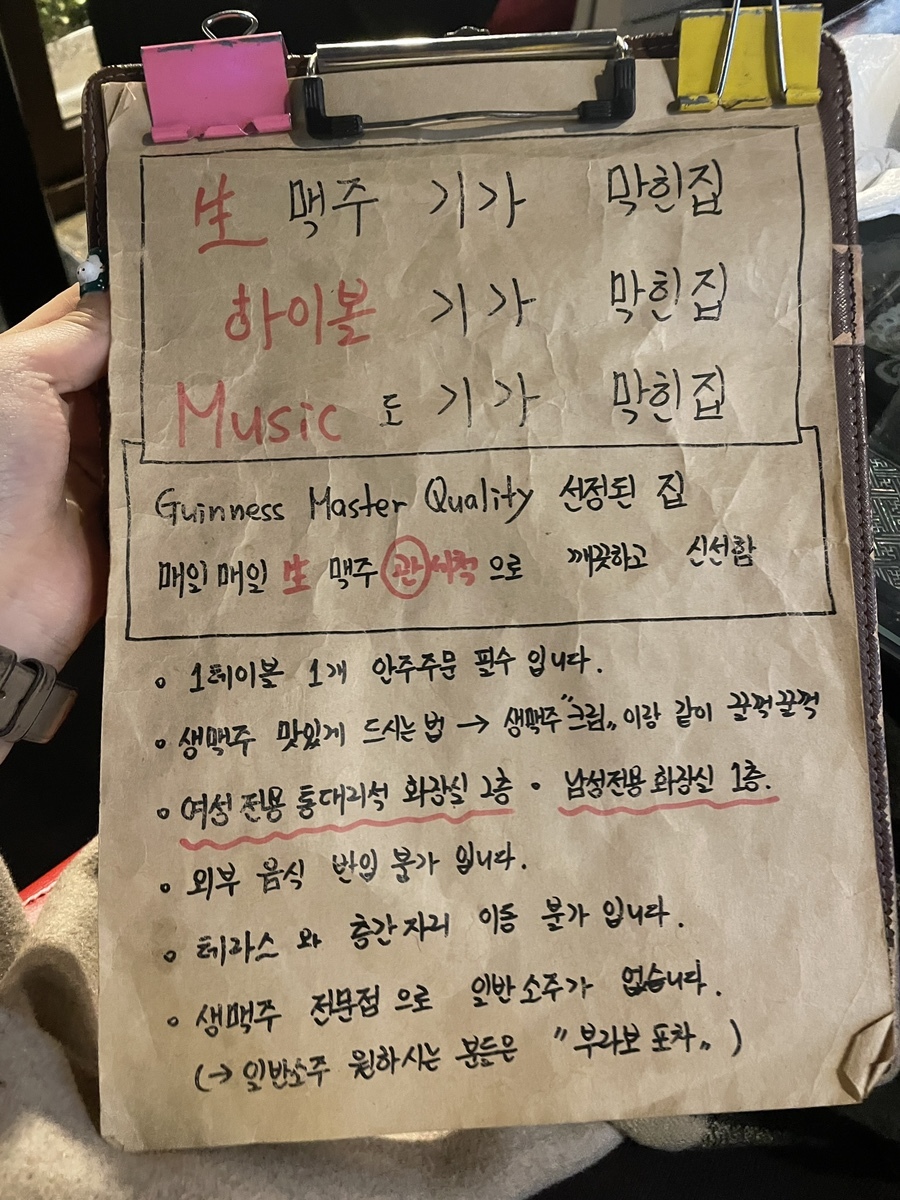 生 맥주 기가 막힌집
하이볼 기가 막힌집
Music 도 기가 막힌집
Guinness Master Quality 선정된 집
매일매일 生 맥주 관세척으로 깨끗하고 신선함
• 1테이블 1개 안주주문 필수 입니다.
• 생맥주 맛있게 드시는 법 → 생맥주 "크림„ 이랑 같이 꿀꺽꿀꺽
• 여성전용 통대리석 화장실 2층 • 남성전용 화장실 1층.
• 외부 음식 반입 불가 입니다.
• 테라스 와 층간자리 이동 불가 입니다.
• 생맥주 전문점 으로 일반소주가 없습니다.
(→ 일반소주 원하시는 분들은 "부라보 포차„ )